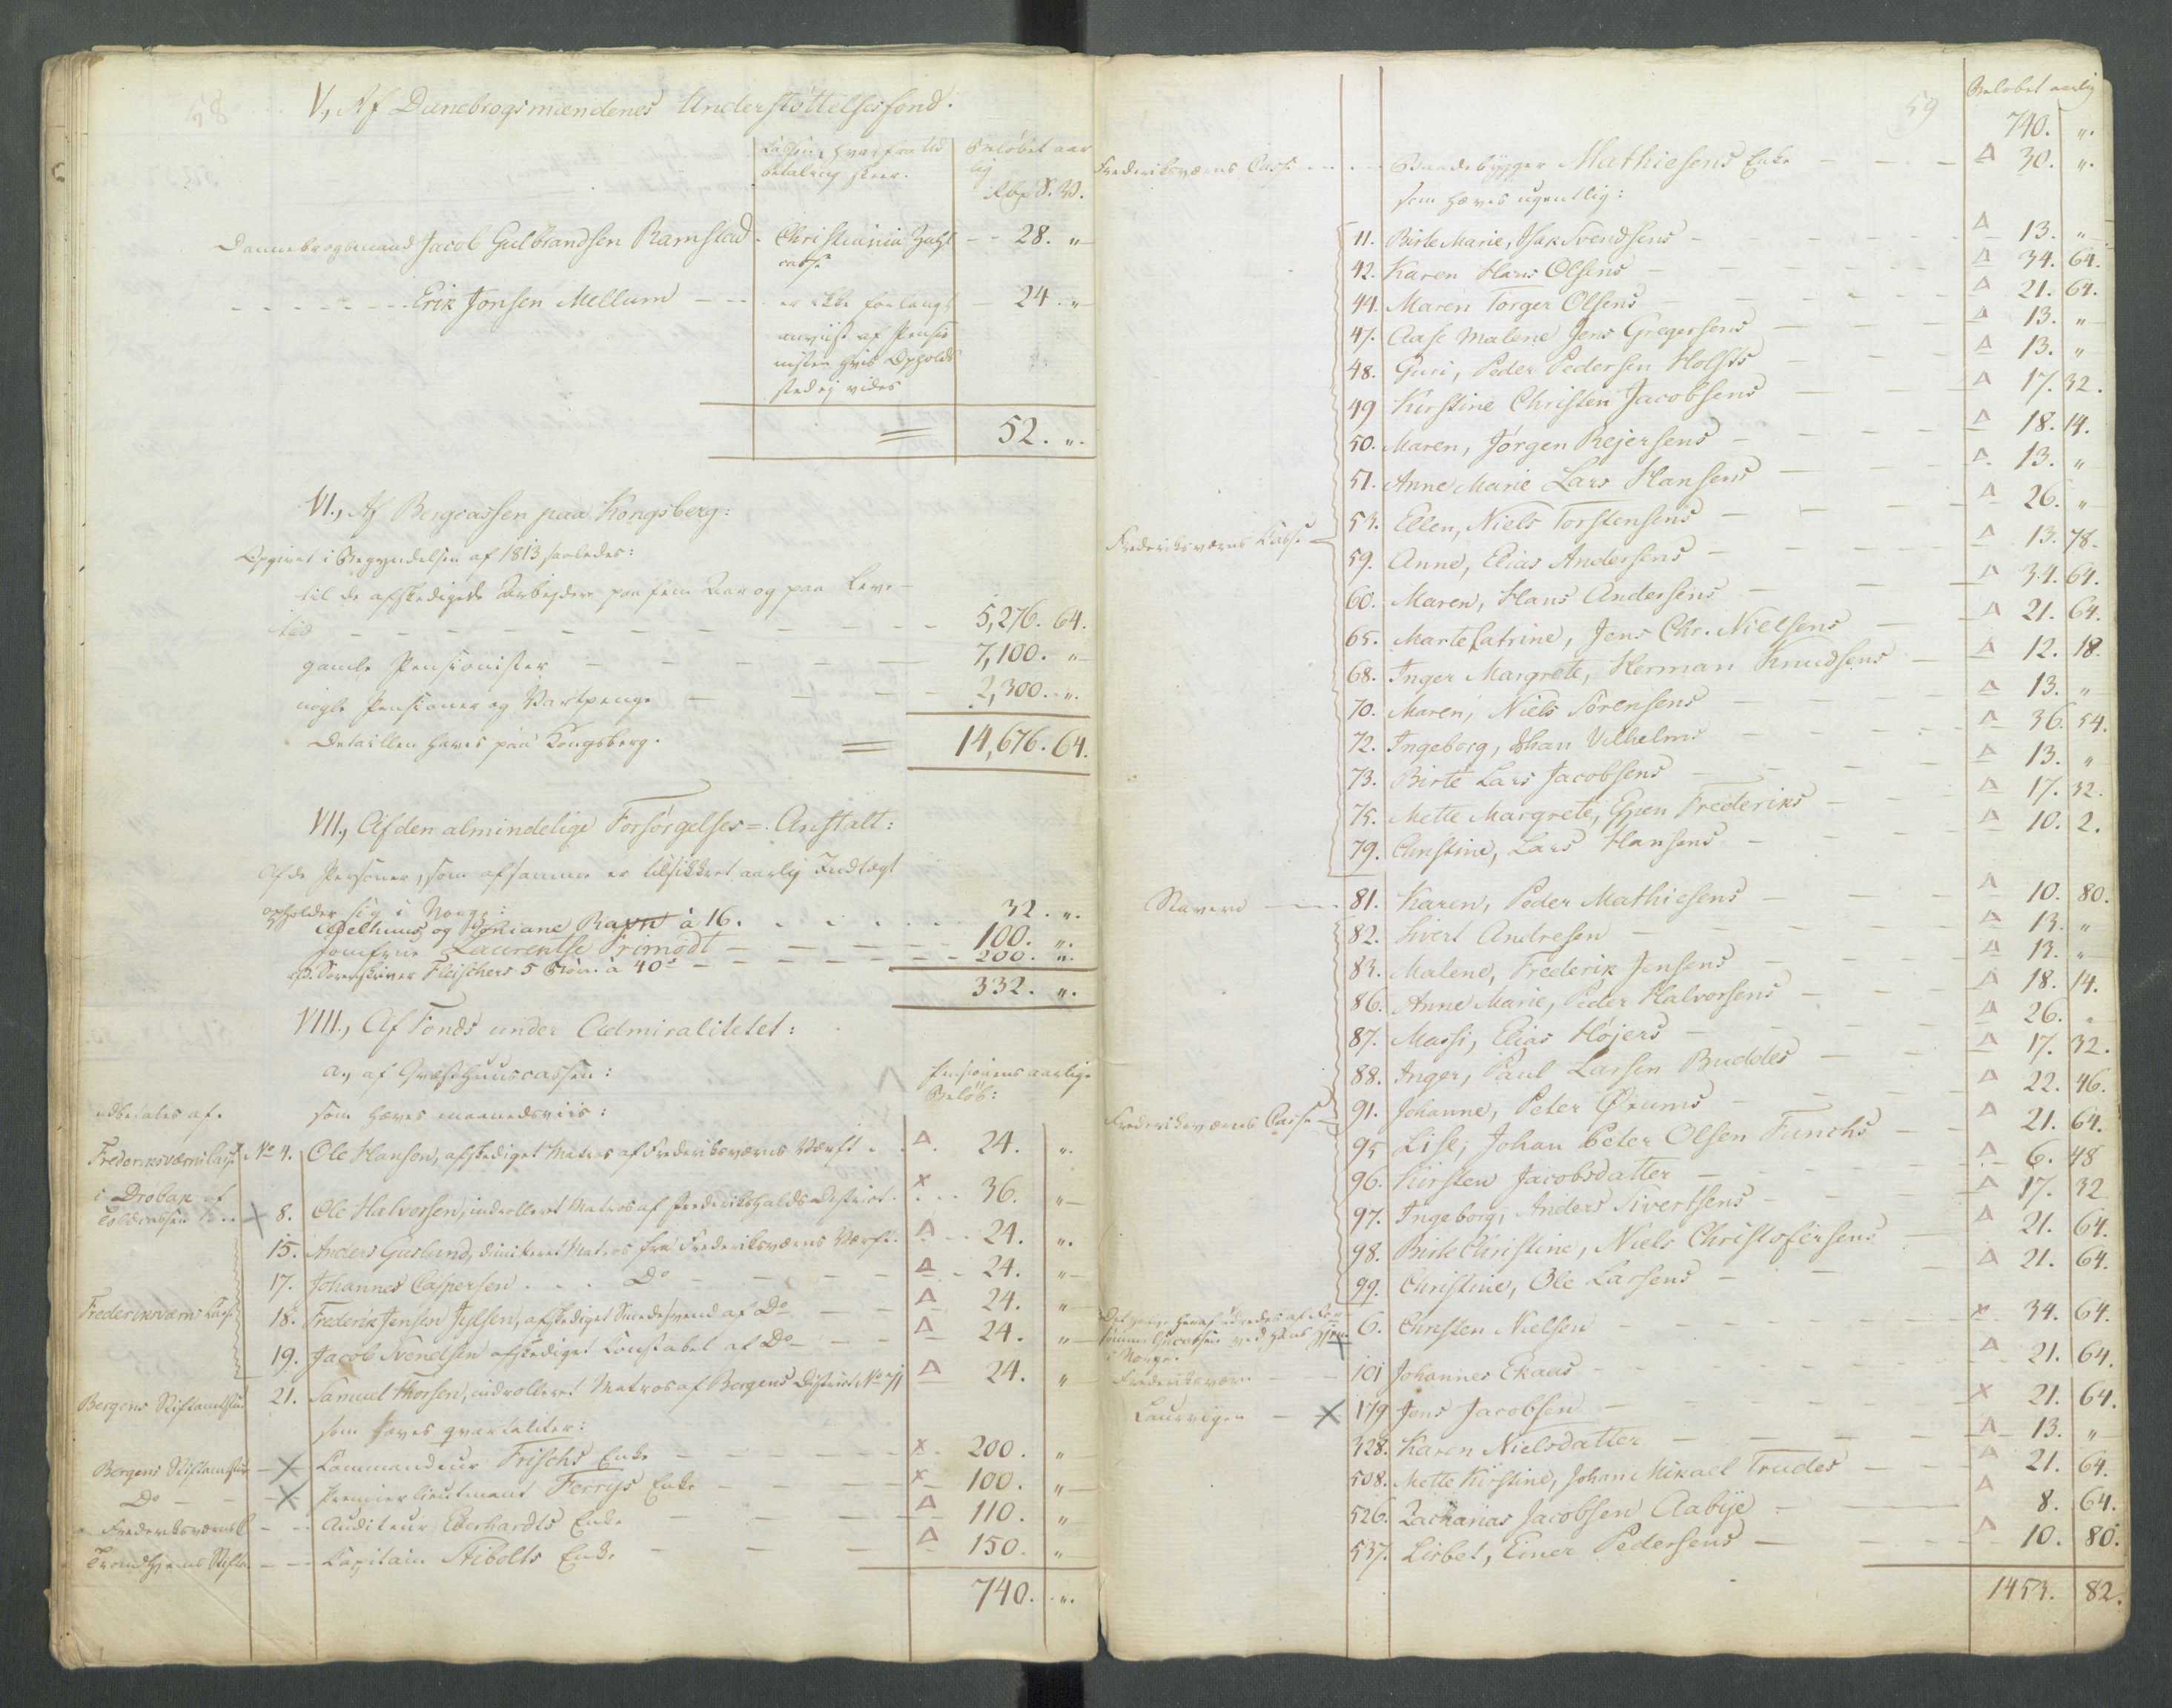 V, Af Danebrogsmændenes Understøttelsesfond.
Cassen, hvorfra Ud
betaling skeer.
Beløbet aar
lig
Rbd S. V.
Dannebrogsmand Jacob Gulbrandsen Ramstad. Christiania Zahl - - 28. "
casse
- - - - - - - Erik Jonsen Mellum - - - er ikke forlangt - 24. "
anviist af Pensio
nisten hvis Opholds
sted ej vides
52. ".
VI., Af Bergcassen paa Kongsberg:
Opgivet i Begyndelsen af 1813 saaledes:
til de afskedigede Arbejdere paa fem Aar og paa Leve-
tid - - - - - - - - - - 5,276. 64.
gamle Pensionister - - - - - 7,100. "
nogle Pensioner og Vartpenge - - - - 2,300. ".
Detaillen haves paa Kongsberg. = 14,676. 64.
VII., Af den almindelige Forsørgelses=Anstalt:
Af de Personer, som af samme er tilsikkret aarlig Indtægt
opholder sig i Norge:
og Rapn à 16. - - - - 32. ".
Jomfrue Laurentse Primodt - - - - - 100. ".
Sorenskriver Fleischers 5 Børn à 40 - - - - - 200. ".
332. ".
VIII., Af Fonds under Admiralitetet:
a., af Qvæsthuuscassen: Pensionens aarlige
Beløb:
udbetales af. som hæves maanedsviis:
Frederiksværns Casse No 4. Ole Hansen, afskediget Matros af Frederiksværns Værft. Δ 24. ".
i Drøbak af
Toldcassen - - × 8. Ole Halvorsen, indrolleret Matros af Frederikshalds District. × 36. "
15. Anders Gusland, dimitteret Matros fra Frederiksværns Værft. Δ 24. ".
17. Johannes Caspersen - - - Do - - - - Δ 24. "
Frederiksværns Casse 18. Frederik Jensen Jylsen, afskediget Smedesvend af Do - - Δ 24. "
19. Jacob Svendsen afskediget Constabel af Do - - Δ 24. "
Bergens Stiftamtstue 21. Samuel Thorsen, indrolleret Matros af Bergens District Δ 24. "
som hæves qvartaliter:
Bergens Stiftamtstue - × Commandeur Frischs Enke - - - - × 200. "
Do - - × Premierlieutenant Ferrys Enke - - - - × 100. "
Frederiksværns C - - Auditeur Eberhardts Enke - - - - Δ 110. "
Trondhjems Stiftst - - Capitain Stibolts Enke - - - - Δ 150. "
740. ".
59
Beløbet aarlig
740. ".
Frederiksværns Casse - - - Baadebygger Mathiesens Enke - - - Δ 30. ".
som hæves ugentlig:
11. Birte Marie, Isak Svendsens - - - Δ 13. "
42. Karen Hans Olsens - - - Δ 34. 64.
44. Maren Torger Olsens - - - Δ 21. 64.
47. Aase Malene Jens Gregersens - - - Δ 13. "
48. Guri, Peder Pedersen Holsts - - - Δ 13. "
49 Kirstine Christen Jacobsens - - - Δ 17. 32.
50. Maren, Jørgen Rejersens - - - Δ 18. 14.
51. Anne Marie Lars Hansens - - - Δ 13. "
53. Ellen, Niels Torstensens - - - Δ 26. "
Frederiksværns Casse
59. Anne, Elias Andersens - - - Δ 13. 78.
60. Maren, Hans Andersens - - - Δ 34. 64.
65. Marte Catrine, Jens Chr. Nielsens - - - Δ 21. 64.
68. Inger Margrete, Herman Knudsens - - - Δ 12. 18.
70. Maren, Niels Sørensens - - - Δ 13. "
72. Ingeborg, Johan Vilhelms - - - Δ 36. 54.
73. Birte Lars Jacobsens - - - Δ 13. "
75. Mette Margrete, Espen Frederiks - - - Δ 17. 32.
79. Christine, Lars Hansens - - - Δ 10. 2.
Stavern - - - 81. Karen, Peder Mathiesens - - - Δ 10. 80.
82. Sivert Andresen - - - Δ 13. "
83. Malene, Frederik Jensens - - - Δ 13. "
86. Anne Marie, Peder Halvorsens - - - Δ 18. 14.
87. Massi, Elias Højers - - - Δ 26. "
88. Inger, Paul Larsen Buddes - - - Δ 17. 32.
Frederiksværns Casse - 91. Johanne, Peter Ørums - - - Δ 22. 46.
95 Lise, Johan Peter Olsen Funchs - - Δ 21. 64.
96. Kirsten Jacobsdatter - - - 6. 48
97. Ingeborg, Anders Sivertsens - - - Δ 17. 32
98. Birte Christine, Niels Christofersens - Δ 21. 64.
99. Christine, Ole Larsens - - - Δ 21. 64.
6. Christen Nielsen - - - × 34. 64.
i Norge. ×
Frederiksværn - - 101 Johannes Ekaas - - - Δ 21. 64.
Laurvigen - × 179 Jens Jacobsen - - - × 21. 64.
328. Karen Nielsdatter - - - Δ 13. "
508. Mette Kirstine, Johan Mikael Trudes - - Δ 21. 64.
526. Zacharias Jacobsen Aabye - - Δ 8. 64.
537. Lisbet, Einer Pedersens - - - Δ 10. 80.
1453. 82.